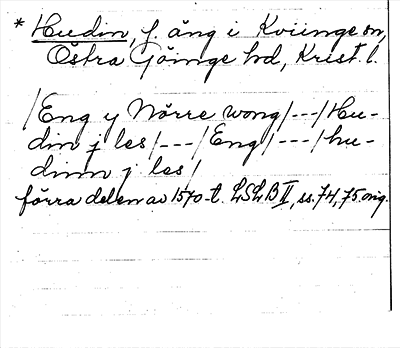 * Hudin, f. äng i Kviinge sn,
Östra Göinge hd, Krist. l.
/Eng y Nörre wong/---/Hu-
din j les/---/Eng/---/hu-
dinn j les/
förra delen av 1570-t. LSLB II, ss. 74, 75 orig.